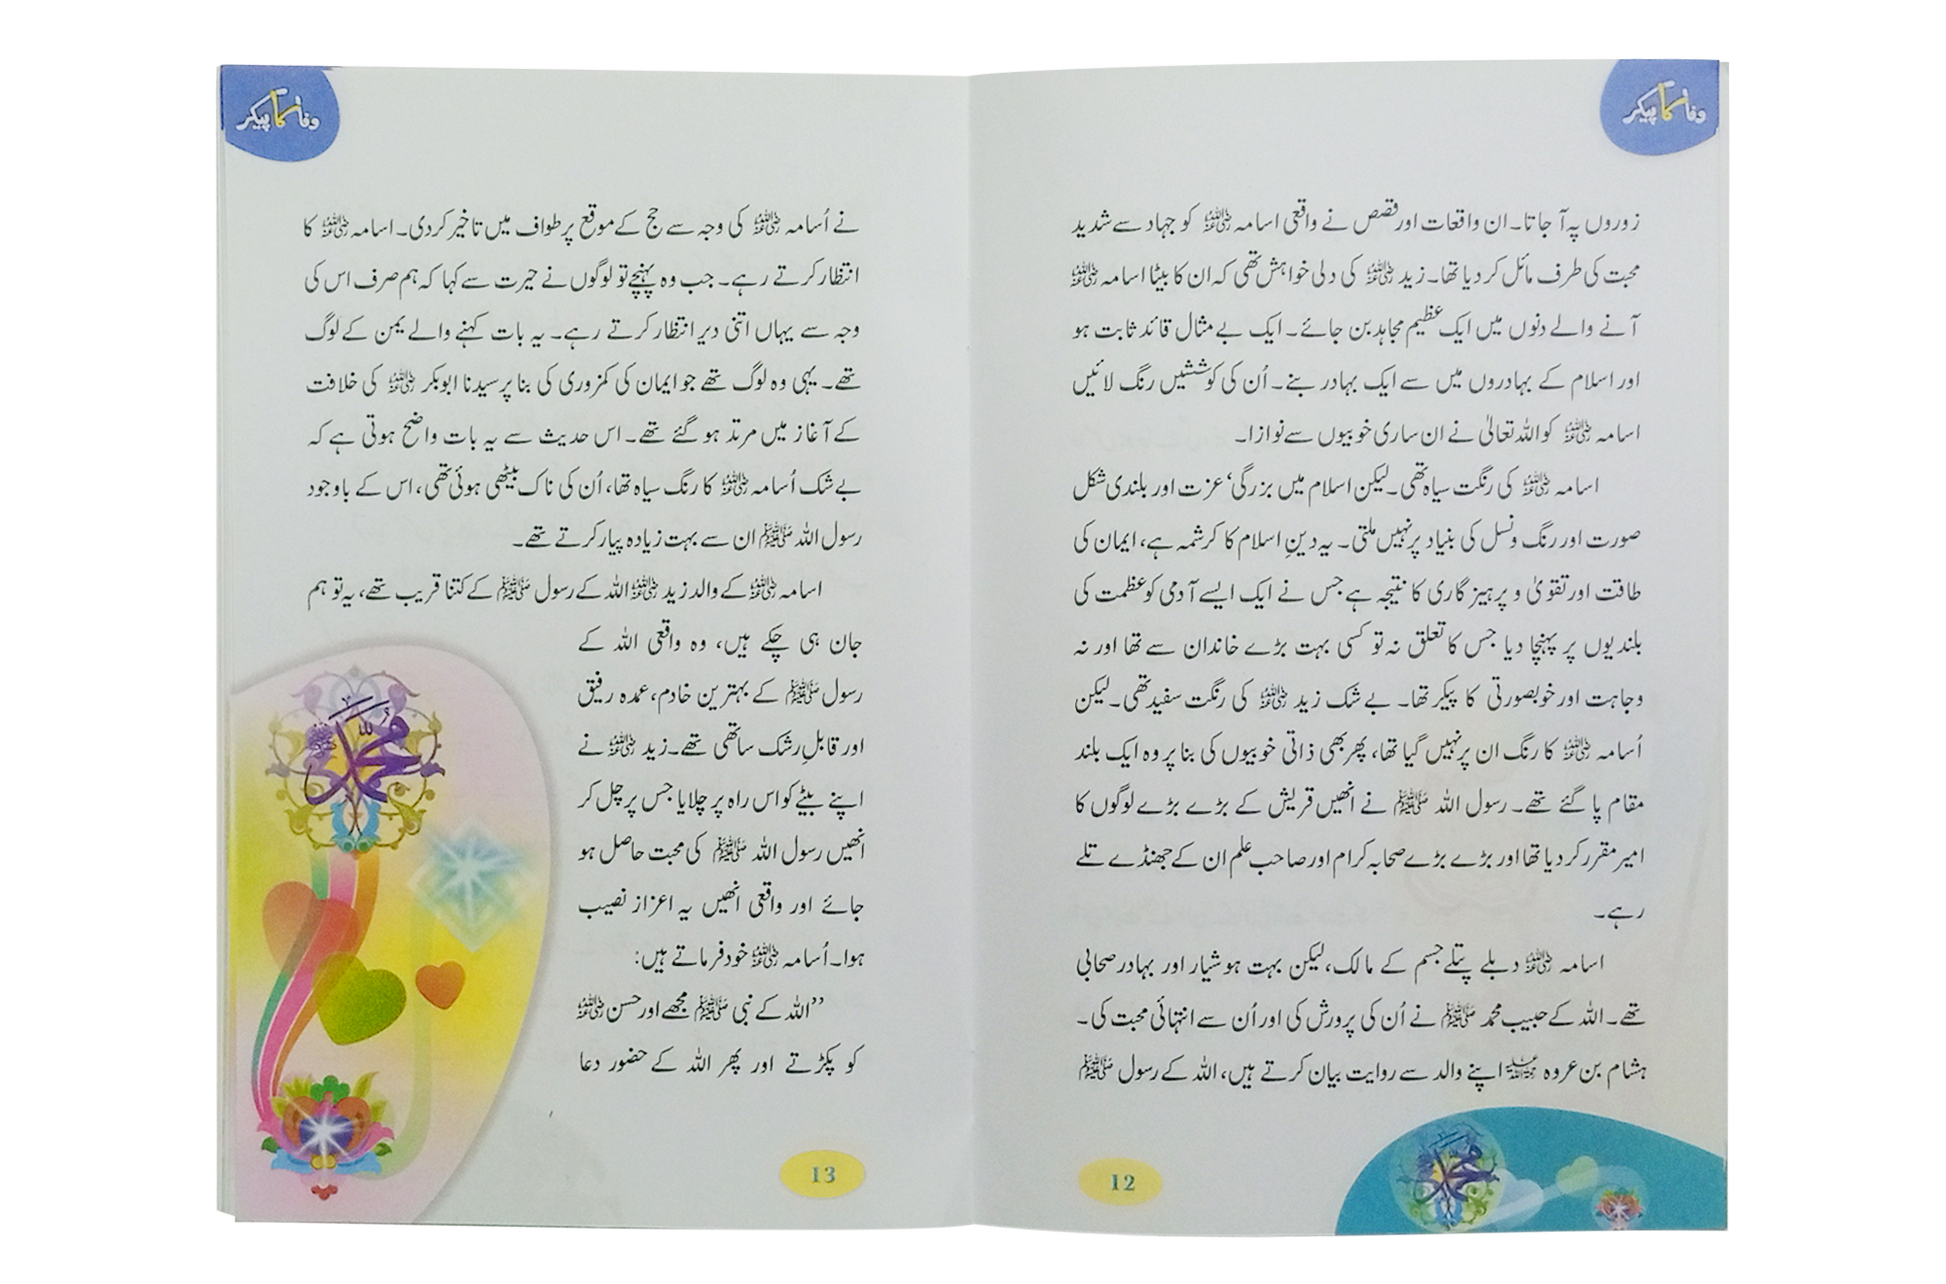 وفا کا پیکر
زوروں پہ آ جاتا۔ ان واقعات اور قصص نے واقعی اسامہ رضی اللہ عنہ کو جہاد سے شدید
محبت کی طرف مائل کر دیا تھا۔ زید رضی اللہ عنہ کی دلی خواہش تھی کہ ان کا بیٹا اسامہ رضی اللہ عنہ
آنے والے دنوں میں ایک عظیم مجاہد بن جائے۔ ایک بے مثال قائد ثابت ہو
اور اسلام کے بہادروں میں سے ایک بہادر بنے۔ اُن کی کوششیں رنگ لائیں
اسامہ رضی اللہ عنہ کو اللہ تعالیٰ نے ان ساری خوبیوں سے نوازا۔
اسامہ رضی اللہ عنہ کی رنگت سیاہ تھی۔ لیکن اسلام میں بزرگی‘ عزت اور بلندی شکل
صورت اور رنگ و نسل کی بنیاد پر نہیں ملتی۔ یہ دینِ اسلام کا کرشمہ ہے، ایمان کی
طاقت اور تقویٰ و پرہیز گاری کا نتیجہ ہے جس نے ایک ایسے آدمی کو عظمت کی
بلندیوں پر پہنچا دیا جس کا تعلق نہ تو کسی بہت بڑے خاندان سے تھا اور نہ
وجاہت اور خوبصورتی کا پیکر تھا۔ بے شک زید رضی اللہ عنہ کی رنگت سفید تھی۔ لیکن
اُسامہ رضی اللہ عنہ کا رنگ ان پر نہیں گیا تھا، پھر بھی ذاتی خوبیوں کی بنا پر وہ ایک بلند
مقام پا گئے تھے۔ رسول اللہ ﷺ نے انھیں قریش کے بڑے بڑے لوگوں کا
امیر مقرر کر دیا تھا اور بڑے بڑے صحابہ کرام اور صاحب علم ان کے جھنڈے تلے
رہے۔
اسامہ رضی اللہ عنہ دبلے پتلے جسم کے مالک، لیکن بہت ہوشیار اور بہادر صحابی
تھے۔ اللہ کے حبیب محمد ﷺ نے اُن کی پرورش کی اور اُن سے انتہائی محبت کی۔
ہشام بن عروہ رحمہ اللہ اپنے والد سے روایت بیان کرتے ہیں، اللہ کے رسول ﷺ
محمد
12
وفا کا پیکر
نے اُسامہ رضی اللہ عنہ کی وجہ سے حج کے موقع پر طواف میں تاخیر کر دی۔ اسامہ رضی اللہ عنہ کا
انتظار کرتے رہے۔ جب وہ پہنچے تو لوگوں نے حیرت سے کہا کہ ہم صرف اس کی
وجہ سے یہاں اتنی دیر انتظار کرتے رہے۔ یہ بات کہنے والے یمن کے لوگ
تھے۔ یہی وہ لوگ تھے جو ایمان کی کمزوری کی بنا پر سیدنا ابوبکر رضی اللہ عنہ کی خلافت
کے آغاز میں مرتد ہو گئے تھے۔ اس حدیث سے یہ بات واضح ہوتی ہے کہ
بے شک اُسامہ رضی اللہ عنہ کا رنگ سیاہ تھا، اُن کی ناک بیٹھی ہوئی تھی، اس کے باوجود
رسول اللہ ﷺ ان سے بہت زیادہ پیار کرتے تھے۔
اسامہ رضی اللہ عنہ کے والد زید رضی اللہ عنہ اللہ کے رسول ﷺ کے کتنا قریب تھے، یہ تو ہم
جان ہی چکے ہیں، وہ واقعی اللہ کے
رسول ﷺ کے بہترین خادم، عمدہ رفیق
اور قابلِ رشک ساتھی تھے۔ زید رضی اللہ عنہ نے
اپنے بیٹے کو اس راہ پر چلایا جس پر چل کر
انھیں رسول اللہ ﷺ کی محبت حاصل ہو
جائے اور واقعی انھیں یہ اعزاز نصیب
ہوا۔ اُسامہ رضی اللہ عنہ خود فرماتے ہیں:
”اللہ کے نبی ﷺ مجھے اور حسن رضی اللہ عنہ
کو پکڑتے اور پھر اللہ کے حضور دعا
محمد ﷺ
13